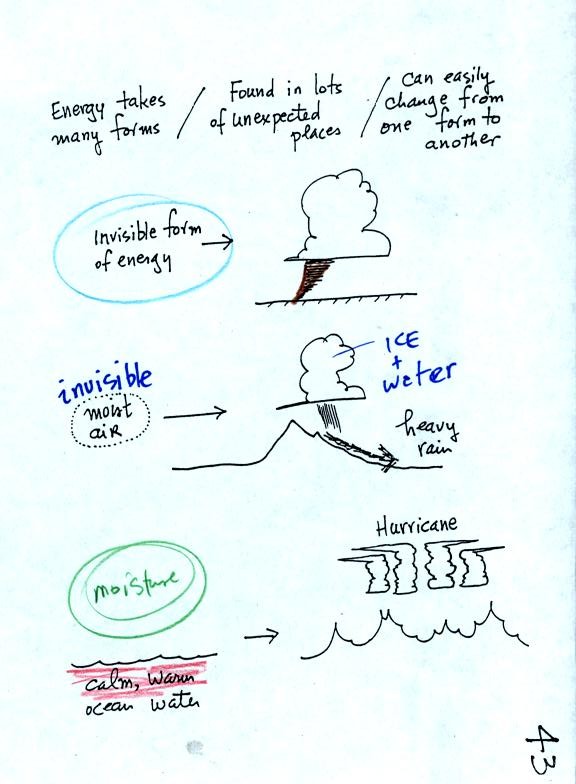 Energy takes
many forms
/
Found in lots
of unexpected
places
/
Can easily
change from
one form to
another
Invisible form
of energy
invisible
moist
air
ICE
+
water
heavy
rain
Hurricane
moisture
calm, warm
ocean water
43